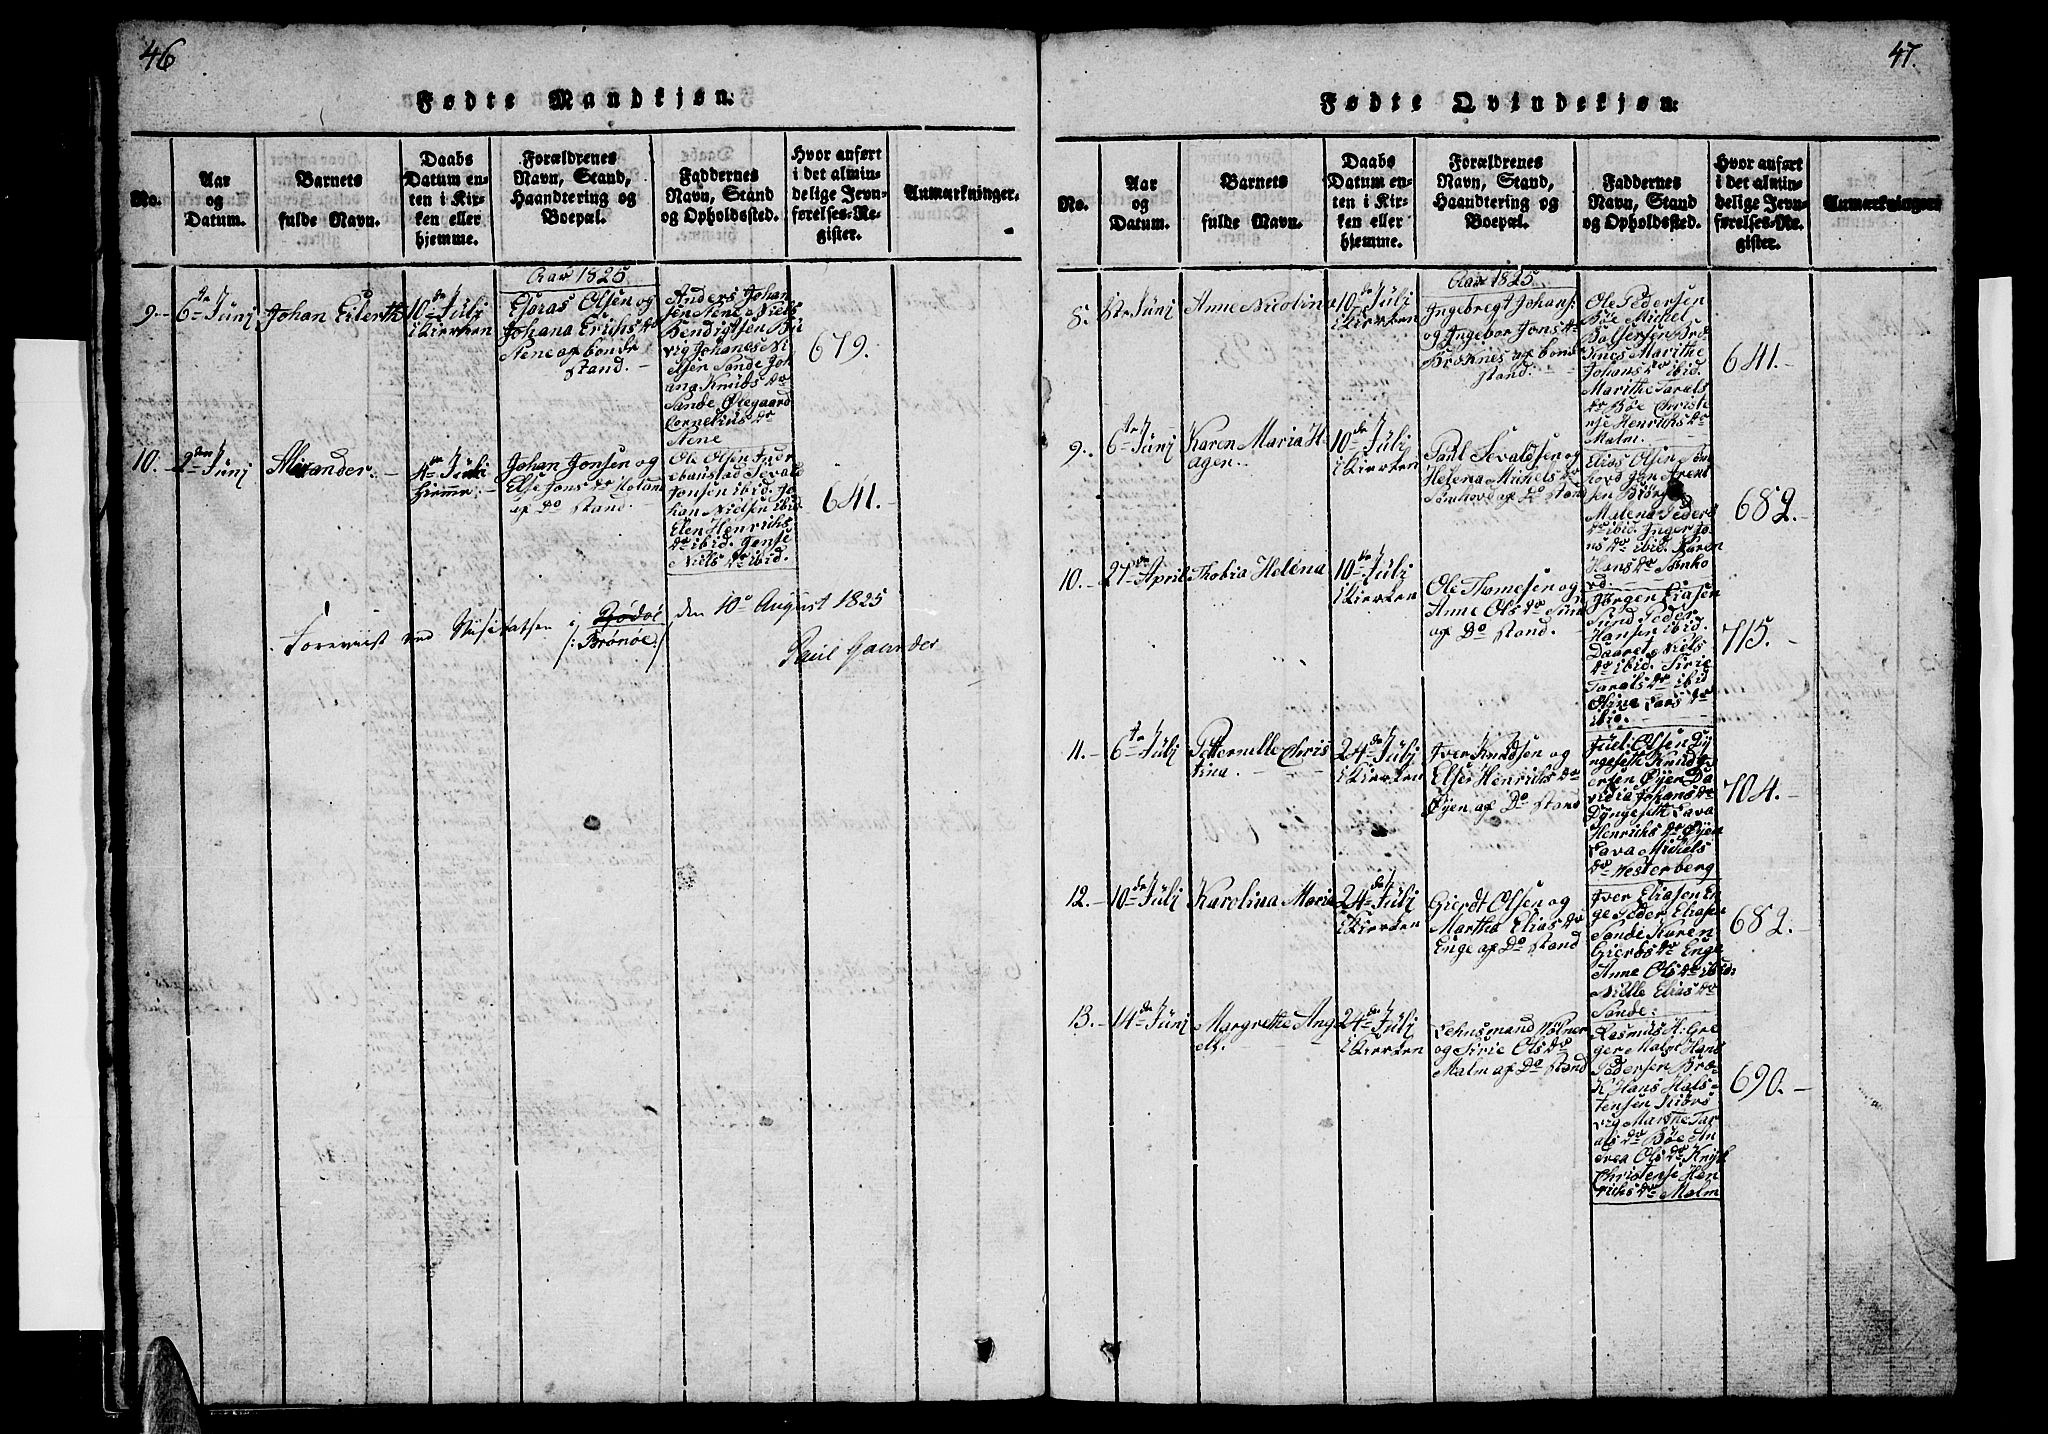 46
Fødte Mandkjøn.
No.
Aar
og
Datum.
Barnets
fulde Navn.
Daabs
Datum en-
ten i Kir-
ken eller
hjemme.
Forældrenes
Navn, Stand,
Haandtering og
Boepæl.
Faddernes
Navn, Stand
og Opholdssted.
Hvor anført
i det almin-
delige Jevn-
førelses-Re-
gister.
Anmærkninger.
Aar 1825
9.
6te Junj
Johan Eilerth
10de Julj
i Kierken
Esras Olsen og
Johana Erichs dr
Stene af bonde
stand.
Anders Johan
sen Stene Niels
Bendigtsen
vig Johanes Ni
elsen Sande Joh
ana Knuds dr
Sande Olegaard
Cornelius dr
Stene
679.
10.
2den Junj
Alexander.
4de Julj
hiemme
Johan Jonsen og
Else Jons dr
af Do stand.
Ole Olsen
Sevald
Jonsen ibid. Jo
han Nielsen ibid
Elen Henrichs
dr ibid.
Niels dr ibid.
641.
Foreviist ved Visitatsen i Brødøe den 10de August 1825
/: Brønøe :/
47.
Fødte Qvindekjøn.
No.
Aar
og
Datum.
Barnets
fulde Navn.
Daabs
Datum en-
ten i Kir-
ken eller
hjemme.
Forældrenes
Navn, Stand,
Haandtering og
Boepæl.
Faddernes
Navn, Stand
og Opholdssted.
Hvor anført
i det almin-
delige Jevn-
førelses-Re-
gister.
Anmærkninger
Aar 1825
8.
Junj
Anne Nicolina
10de Julj
i Kierken
Ingebregt Johans:
og Ingebor Jons dr
Broknes af bonde
stand.
Ole Pedersen
Bøe Michel
Baltsersen Bro
knes Marithe
Johans dr ibid.
Marithe Tarals
dr Bøe Christe
nse Henrichs dr
Malm.
641.
9.
6te Junj
Karen Maria H
agen.
10de Julj
i Kierken
Paul Sevaldsen og
Helena Michels dr
Sømhovd af Do stand
Elias Olsen Søm
hovd Jan Arent
sen
Malena Peders
dr ibid. Inger Jo
ns dr ibid. Karen
Hans dr Sømho
vd.
682.
10.
27de April
Thobia Helena
10de Julj
i Kierken
Ole Thomesen og
Anne Ols dr Sund
af Do stand.
Jørgen Eliasen
Sund Peder
Hansen ibid.
Daaret Niels
dr ibid. Sirie
Tarals dr ibid
Lars dr
ibid.
715.
11.
6te Julj
Petternille Chris
tina.
24de Julj
i Kierken
Iver Knudsen og
Else Henrichs dr
Øyen af Do stand
Juel Olsen Dy
ngeseth Knud Iv
ersen Øyen Da
vidia Johans dr
Dyngeseth Lava
Henrichs dr Øyen
Lava Michels
dr Westerberg
704.
12.
10de Julj
Karolina Maria
24de Julj
i Kierken
Gierdt Olsen og
Martha Elias dr
Enge af Do stand
Iver Eliasen En
ge Peder Eliasen
Sande Karen
Gierts dr Enge
Anne Ols dr ibid:
Nille Elias dr
Sande:
682.
13.
14de Junj
Margrethe Ang
els.
24de Julj
i Kierken
Lehnsmand
og Sirie Ols dr
Malm af Do stand
Rasmus H: Gre
ger Malm Hans
Pedersen Bro-
k Hans Hals-
tensen
vig Marithe Tar
als dr Bøe An
drea Ols dr
Christense Hen
richs dr Malm
690.